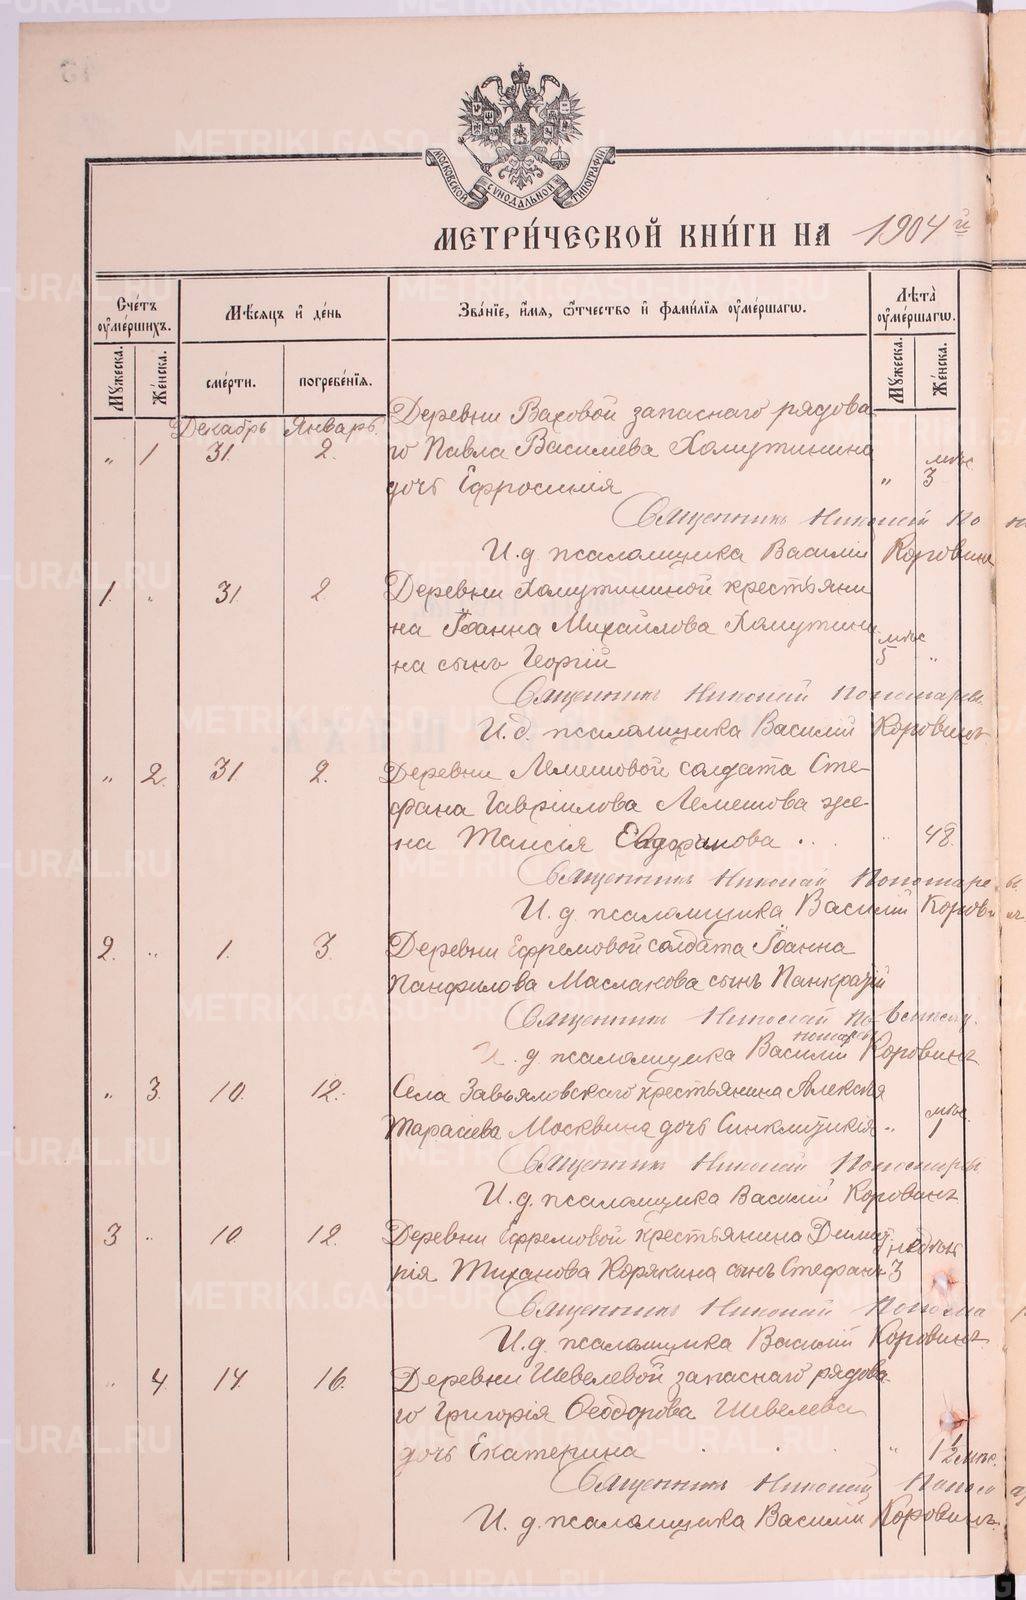 МОСКОВСКОЙ СУНОДАЛЬНОЙ ТИПОГРАФІИ
МЕТРИ́ЧЕСКОЙ КНИ́ГИ НА 1904й
Сче́тъ оуме́ршихъ.
Мѣсяцъ и де́нь
Зва́ніе, и́мя, ѻтчество и фами́лія оуме́ршагѡ.
Лѣта̀ оуме́ршагѡ.
Му́жеска. Же́нска. сме́рти. погребе́нія. Му́жеска. Же́нска.
Декабрь Январь.
Деревни Ваховой запаснаго рядова-
" 1 31. 2. го Павла Василіева Хомутинина мѣс
дочь Ефросинія " 3
Священникъ Николай По
И. д. псаломщика Василій Коровинъ
1. " 31 2. Деревни Хомутининой крестьяни
на Іоанна Михайлова Хомутини- мѣс
на сынъ Георгій 5 "
Священникъ Николай Пономаревъ
И. д. псаломщика Василій Коровинъ
" 2. 31 2. Деревни Лемешовой солдата Сте-
фана Гавріилова Лемешова же-
на Таисія 48.
Священникъ Николай Пономаре
И. д. псаломщика Василій Корови
2. " 1. 3. Деревни Ефремовой солдата Іоанна
Панфилова Маслакова сынъ Панкратій
Священникъ Николай По
номаревъ
И. д псаломщика Василій Коровинъ
" 3. 10. 12. Села Завьяловскаго крестьянина Алексія
Тарасіева Москвина дочь Синклитикія " мѣс. 1
Священникъ Николай Пономаревъ
И. д. псаломщика Василій Коровинъ
3 " 10. 12. Деревни Ефремовой крестьянина Димит- недѣль
рія Тиханова Корякина сынъ Стефанъ 3
Священникъ Николай Понома
И. д. псаломщика Василій Коровинъ
" 4 14. 16. Деревни Шевелевой запаснаго рядова-
го Григорія Ѳеодорова Шевелева
дочь Екатерина . . . " 1½ мѣс.
Священникъ Николай Поном
И. д. псаломщика Василій Коровинъ.
METRIKI.GASO-URAL.RU